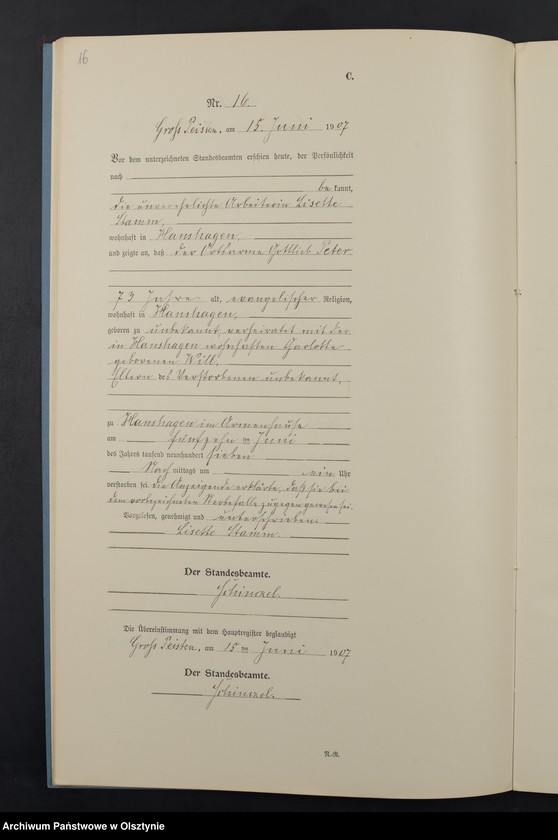 16
C.
Nr. 16.
Gross Peisten, am 15. Juni 1907
Vor dem unterzeichneten Standesbeamten erschien heute, der Persönlichkeit
nach
bekannt,
die unverehelichte Arbeiterin Lisette
Stamm,
wohnhaft in Hanshagen,
und zeigte an, daß der Ortsarme Gottlieb Peter
73 Jahre alt, evangelischer Religion,
wohnhaft in Hanshagen,
geboren zu unbekannt, verheiratet mit der
in Hanshagen wohnhaften Carlotte
geborenen Will,
Eltern des Verstorbenen unbekannt,
zu Hanshagen im Armenhause
am fünfzehn ten Juni
des Jahres tausend neunhundert sieben
Nachmittags um ein Uhr
verstorben sei. Die Anzeigende erklärte, daß sie bei
dem vorbezeichneten Sterbefalle zugegen gewesen sei.
Vorgelesen, genehmigt und unterschrieben.
Lisette Stamm.
Der Standesbeamte.
Schinzel.
Die Übereinstimmung mit dem Hauptregister beglaubigt
Gross Peisten, am 15 ten Juni 1907
Der Standesbeamte.
Schinzel.
Archiwum Państwowe w Olsztynie